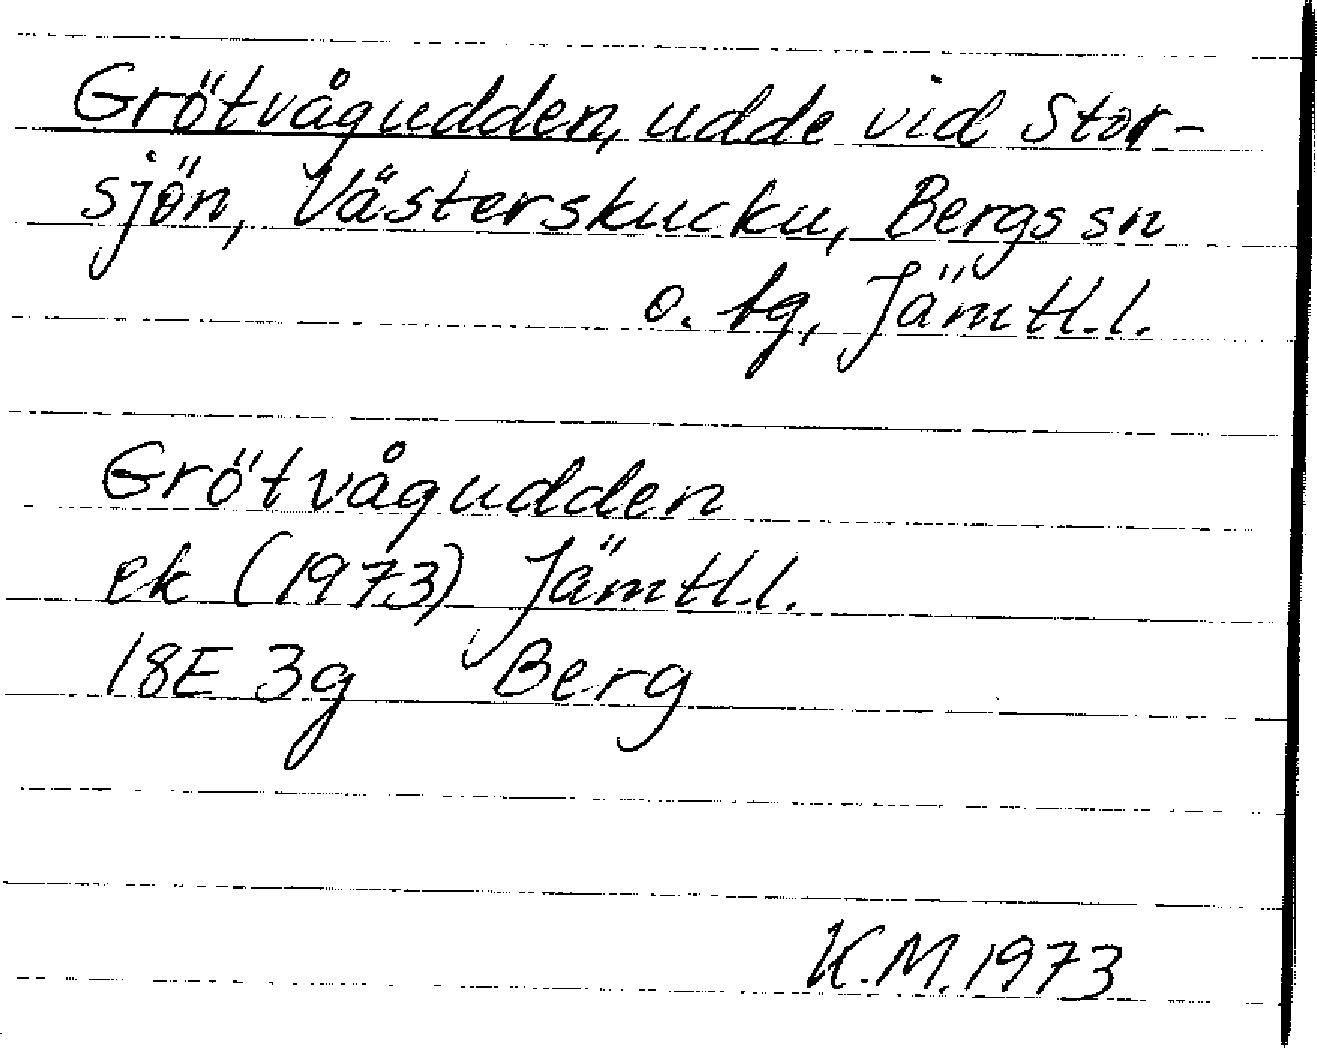 Grötvågudden, udde vid Stor-
sjön, Västerskucku, Bergs sn
o. tg, Jämtl.l.
Grötvågudden
ek (1973) Jämtl.l.
18E 3g Berg
K.M. 1973